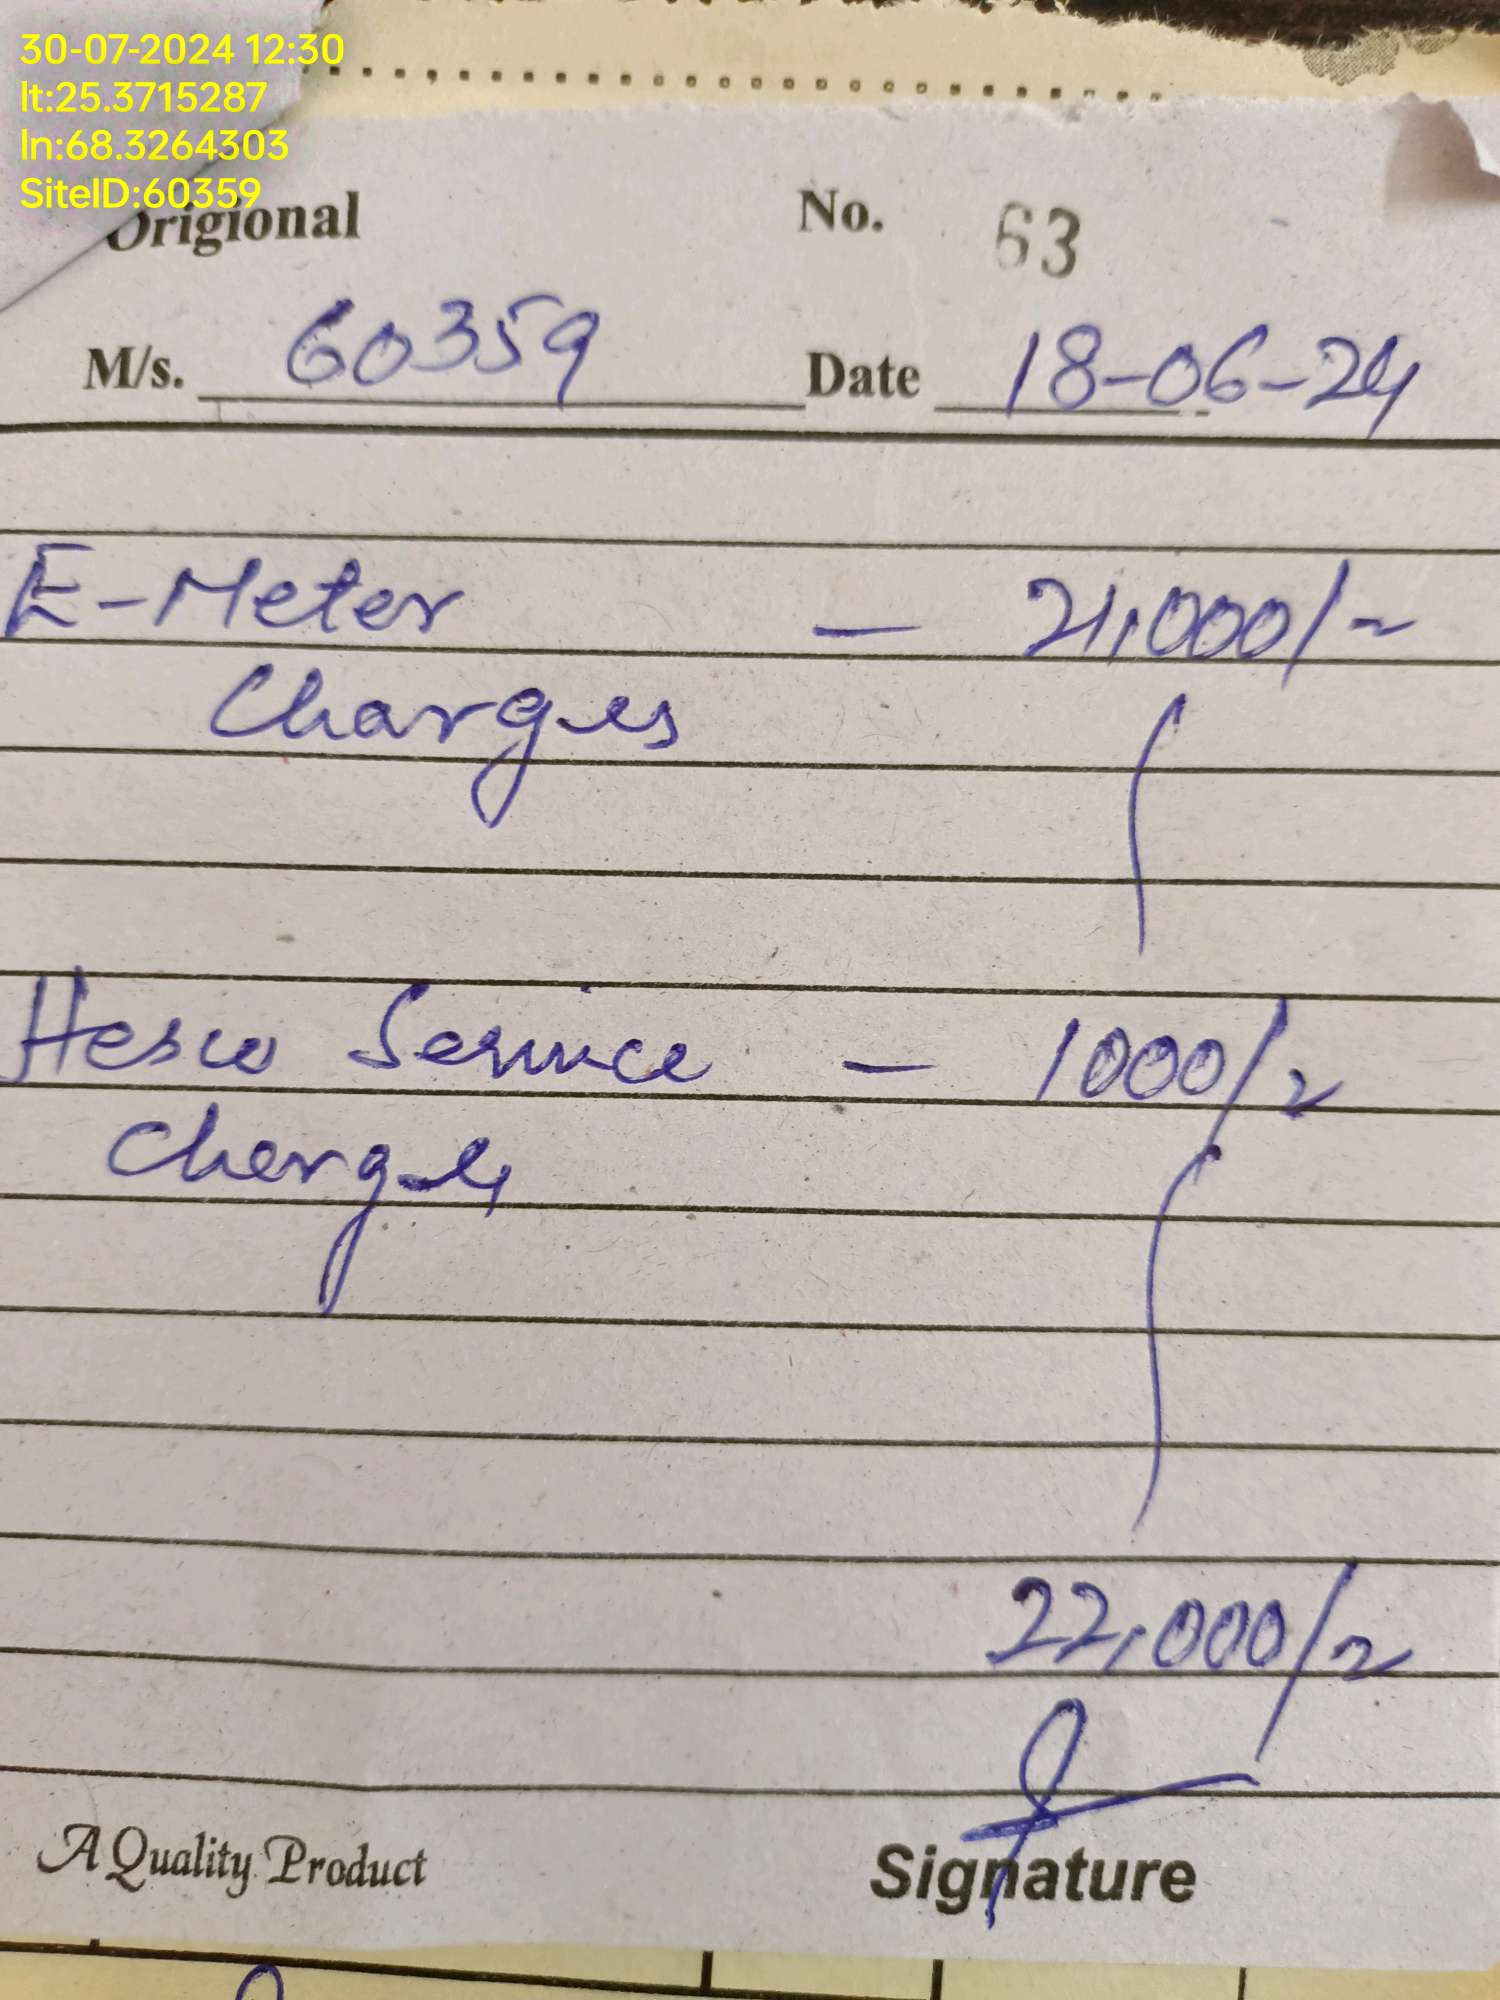 30-07-2024 12:30
lt:25.3715287
ln:68.3264303
SiteID:60359
Origional No. 63
M/s. 60359 Date 18-06-24
E-Meter — 21,000/-
Charges
Hesco Service — 1000/-
Charges
22,000/-
A Quality Product Signature